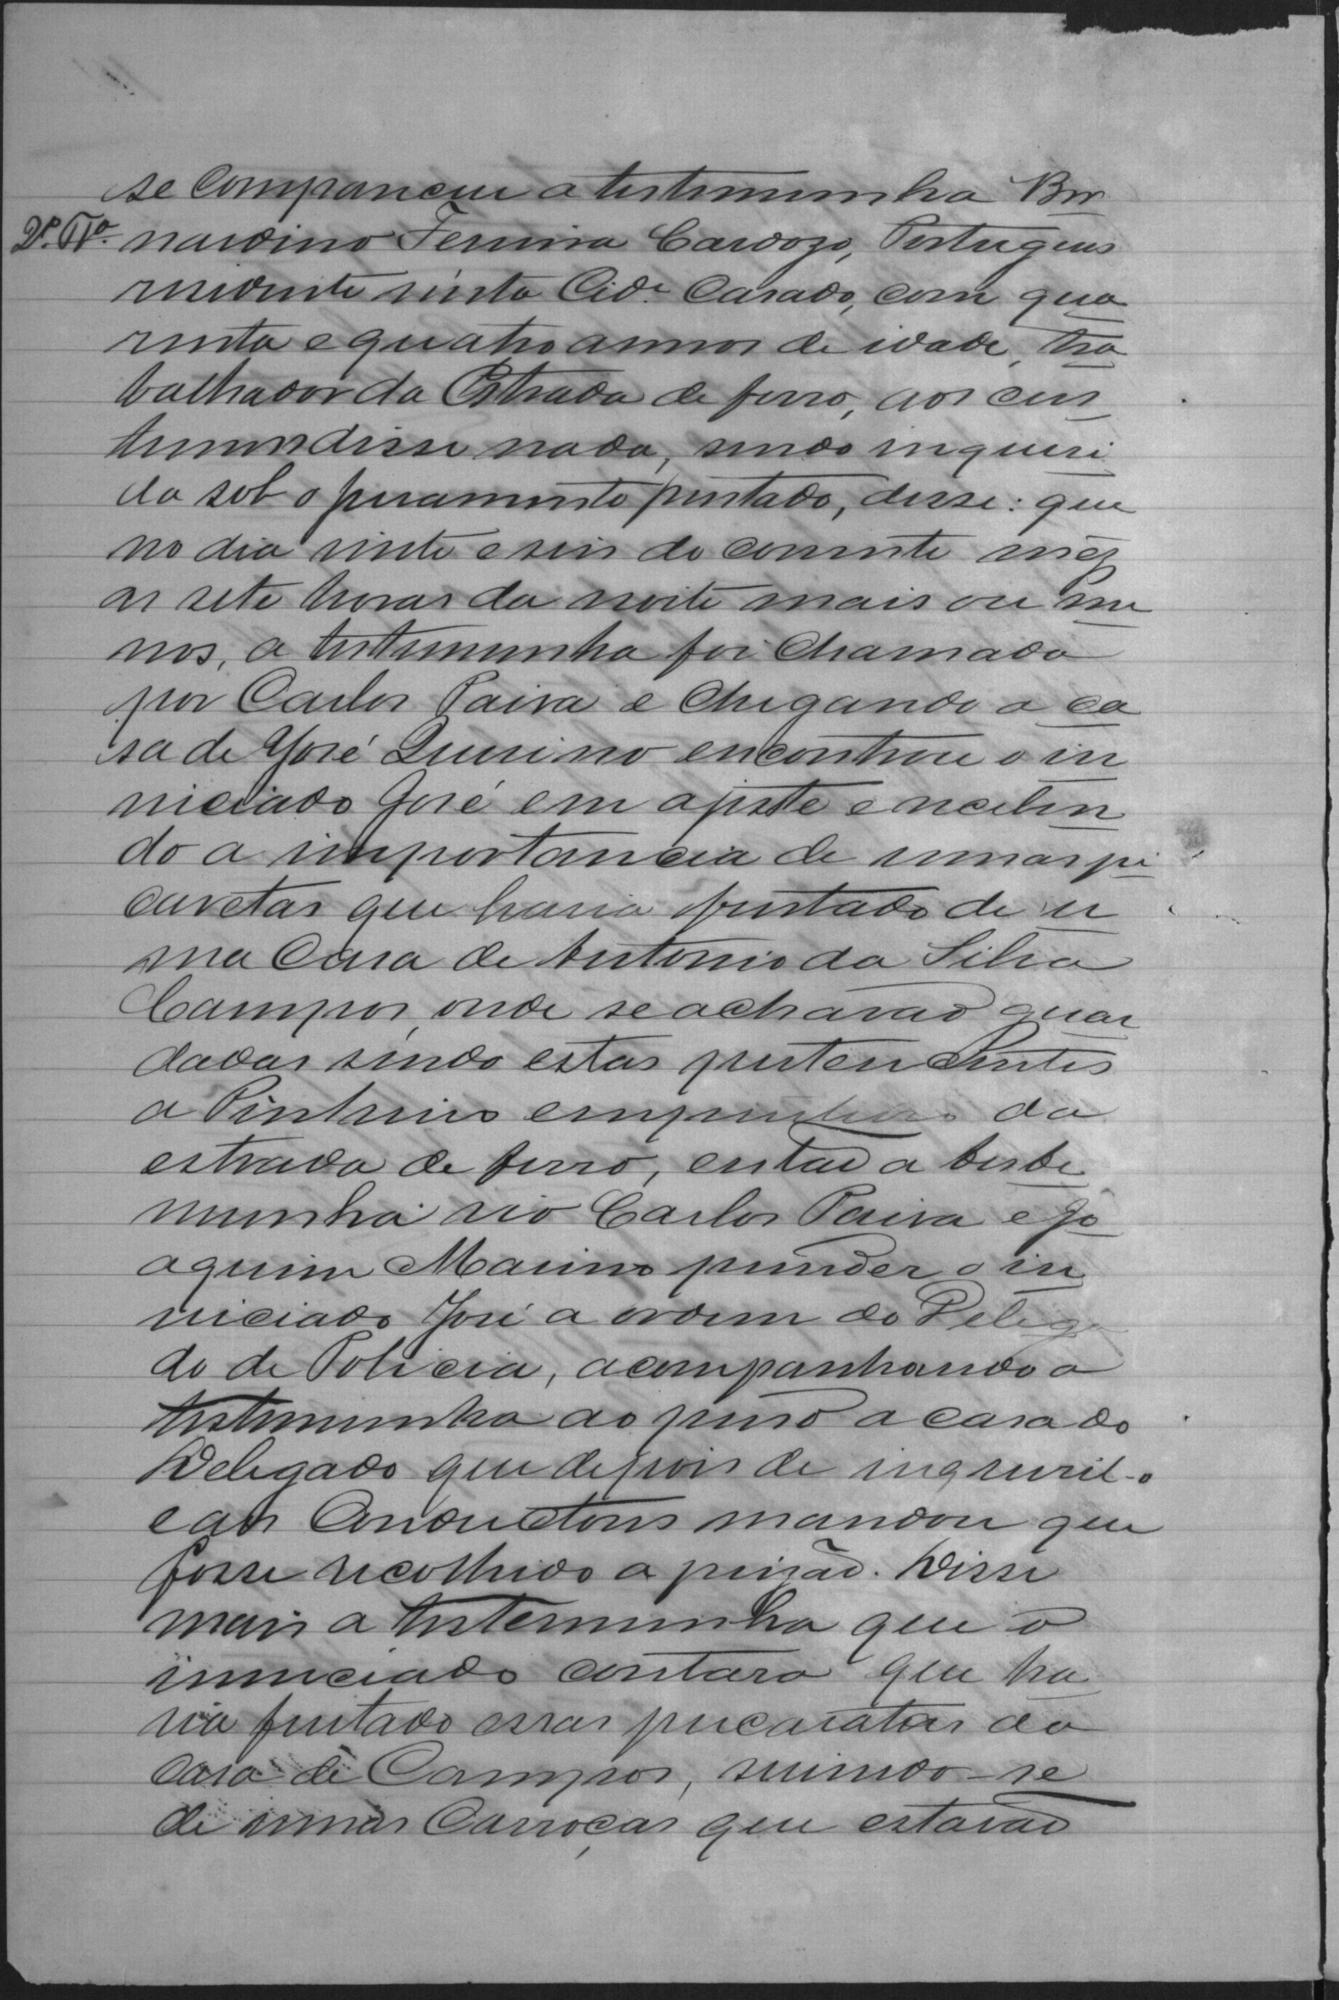 se compareceu a testemunha Ber
2ª Tª. nardino Ferreira Cardozo, Portugues
residente nésta Cidᵉ. Casado, com qua
renta e quatro annos de idade, tra
balhador da Estrada de ferro, aos cus
tumes disse nada, sendo inqueri
da sob o juramento prestado, disse: que
no dia vinte e seis do corrente mêz
as sete horas da noite mais ou me
nos, a testemunha foi chamada
por Carlos Paiva e chegando a ca
sa de José Quirino encontrou o in
niciado José em ajuste e receben
do a importancia de umas pi
caretas que havia furtado de u
ma Casa de Antonio da Silva
Campos, onde se achavão guar
dadas sendo estas pertencentes
a Pinheiro empreiteiro da
estrada de ferro, então a teste
munha vio Carlos Paiva e Jo
aquim Marino prender o in
niciado José a ordem do Delega
do de Policia, acompanhando a
testemunha ao preso a casa do
Delegado que depois de inqueril-o
e aos Conductores mandou que
fosse recolhido a prizão. Disse
mais a testemunha que o
inniciado contara que ha
via furtado essas picaratas da
casa de Campos, servindo-se
de umas Carroças que estavão